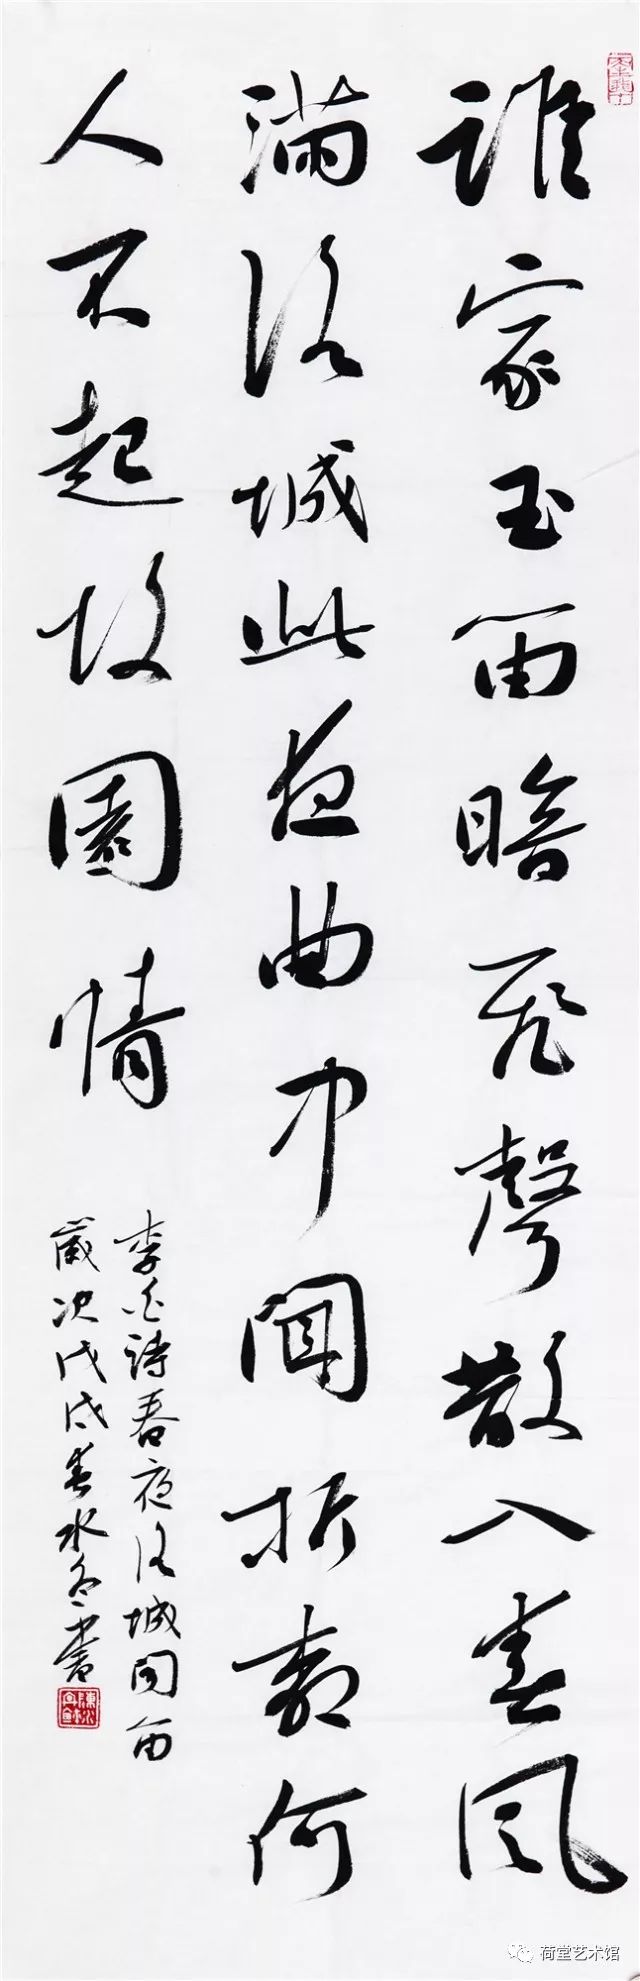 誰家玉笛暗飛聲散入春風
滿洛城此夜曲中聞折柳何
人不起故園情
李白詩春夜洛城聞笛
歲次戊戌春水書
荷堂艺术馆